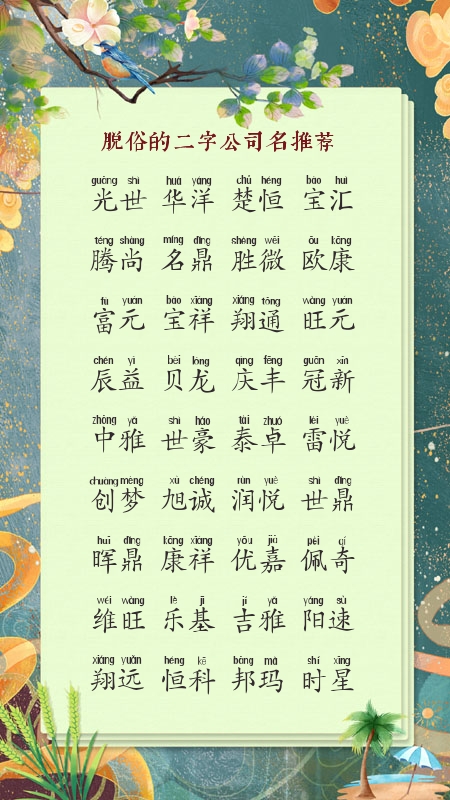 脱俗的二字公司名推荐
guāng shì huá yáng chǔ héng bǎo huì
光世 华洋 楚恒 宝汇
téng shàng míng dǐng shèng wēi ōu kāng
腾尚 名鼎 胜微 欧康
fù yuán bǎo xiáng xiáng tōng wàng yuán
富元 宝祥 翔通 旺元
chén yì bèi lóng qìng fēng guān xīn
辰益 贝龙 庆丰 冠新
zhōng yǎ shì háo tài zhuó léi yuè
中雅 世豪 泰卓 雷悦
chuàng mèng xù chéng rùn yuè shì dǐng
创梦 旭诚 润悦 世鼎
huī dǐng kāng xiáng yōu jiā pèi qí
晖鼎 康祥 优嘉 佩奇
wéi wàng lè jī jí yǎ yáng sù
维旺 乐基 吉雅 阳速
xiáng yuǎn héng kē bāng mǎ shí xīng
翔远 恒科 邦玛 时星